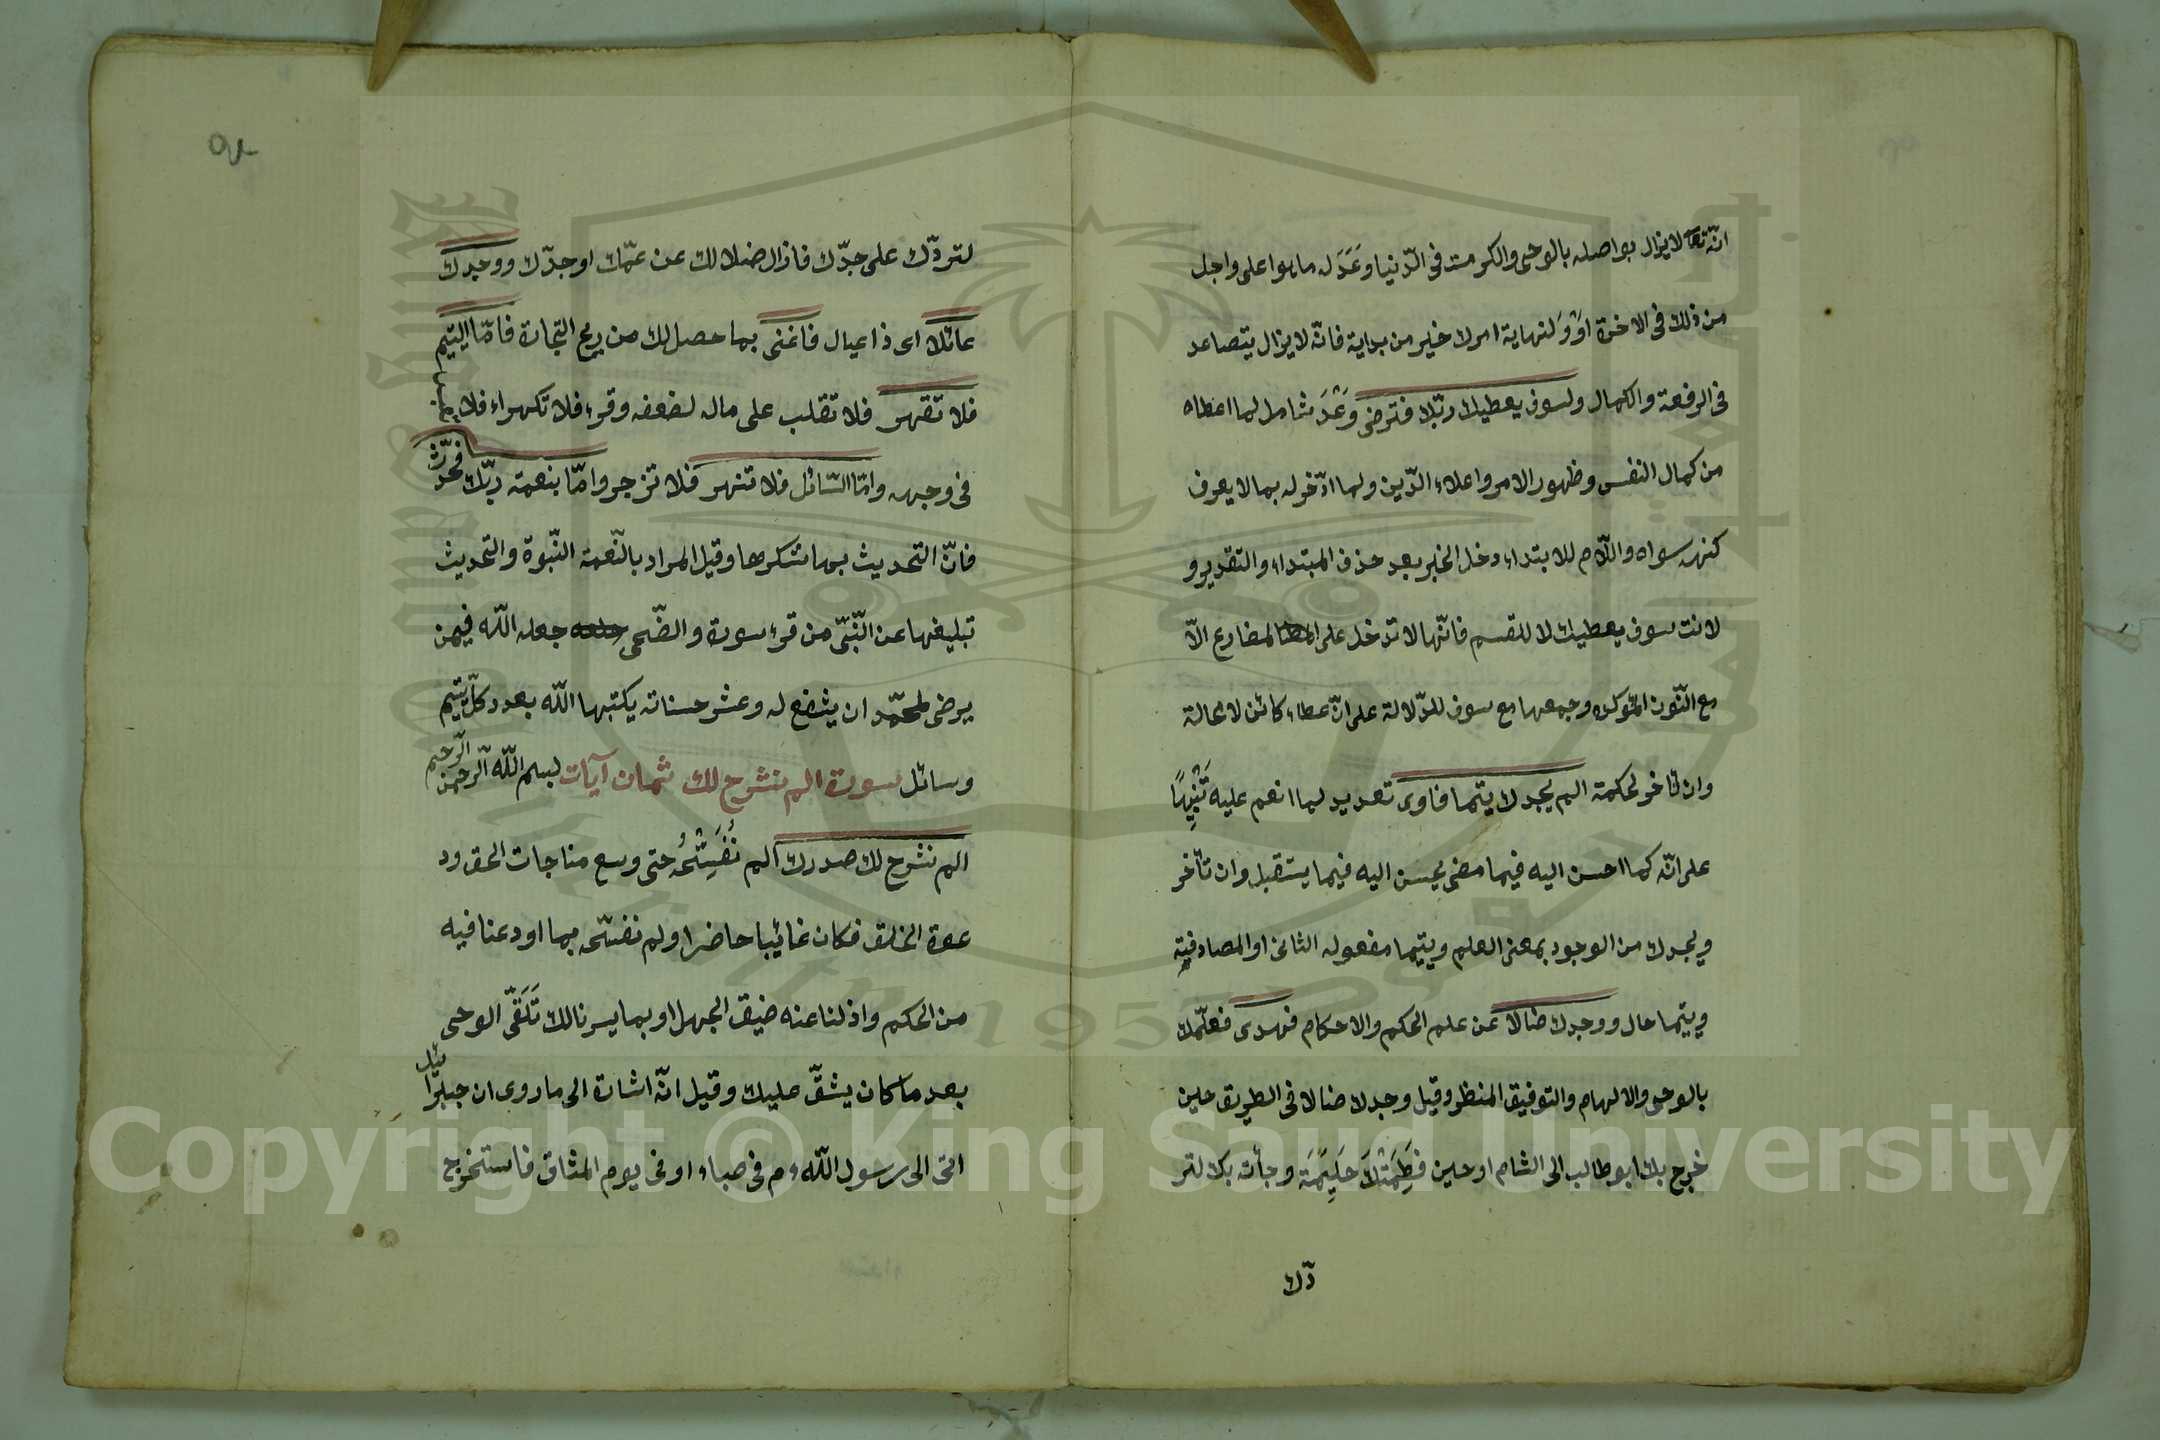 انّه تعا لا يزال يواصله بالوحى والكرامت فى الدّنيا وعَدَ له ما هوا على واجل
من ذلك فى الاخرة اَوْ وَلنهاية امرك خير من بداية فانّه لا يزال يتصاعد
فى الرفعة والكمال ولسوف يعطيك ربّك فترضى وَعْدَ شامل لما اعطاه
من كمال النفس وظهور الامر واعلاء الدّين ولما ادّخر له بما لا يعرف
كنهه سواه واللّام للابتداء دخل الخبر بعد حذف المبتداء والتقدير و
لانت سوف يعطيك لا للقسم فانّها لا تدخل على المضارع الّا
مع النّون المؤكده وجمعها مع سوف للدّلالة على انّ عطاء كائن لا محالة
وان تأخر لحكمة الم يجدك يتما فاوى تعديد لما انعم عليه تَنْبِيْهًا
على انّه كما احسن اليه فيما مضى يحسن اليه فيما يستقبل وان تأخر
ويجدك من الوجود بمعنى العلم ويتيما مفعوله الثانى او المصادفة
ويتيما حال ووجدك ضالاّ عن علم الحكم والاحكام فهدى فعلّمك
بالوحى والالهام والتوفيق المنظر وقيل وجدك ضالا فى الطريق حين
خرج بك ابو طالب الى الشام او حين فَطِمَتْكَ حَلِيْمَةَ وجأت بك لتر
دّك
لتردّك على جدّك فازال ضلالك عن عمّك او جدّك ووجدك
عائلا اى ذا عيال فاغنى بما حصل لك من ربح التجارة فامّا اليتيم
فلا تقهر فلا تقلب على ماله لضعفه وقرء فلا تكهر اء فلا
فى وجهه وامّا السّائل فلا تنهر فلا تزجر وامّا بنعمة ربّك فحدّث
فانّ التحديث بها شكرها وقيل المراد بالنّعمة النّبوة والتحديث
تبليغها عن النّبىّ من قرء سورة والضّحى جعله اللّه فيمن
يرضى لمحمّد ان يشفع له وعشر حسناته يكتبها اللّه بعدد كلّ يتيم
وسائل سورة الم نشرح لك ثمان آيات بسم اللّه الّرحمن الّرحيم
الم نشرح لك صدرك الم نُفَسِّحُه حتى وسع مناجات الحق ود
عوة الخلق فكان غائبا حاضرا ولم نفسّحه بما اودعنا فيه
من الحكم واذلنا عنه ضيق الجهل او بما يسرنا لك تَلَقّى الوحى
بعد ما كان يشقّ عليك وقيل انّه اشارة الى ما روى ان جبرائيل
اتى الى رسول اللّه ءم فى صباء او فى يوم المثاق فاستخرج